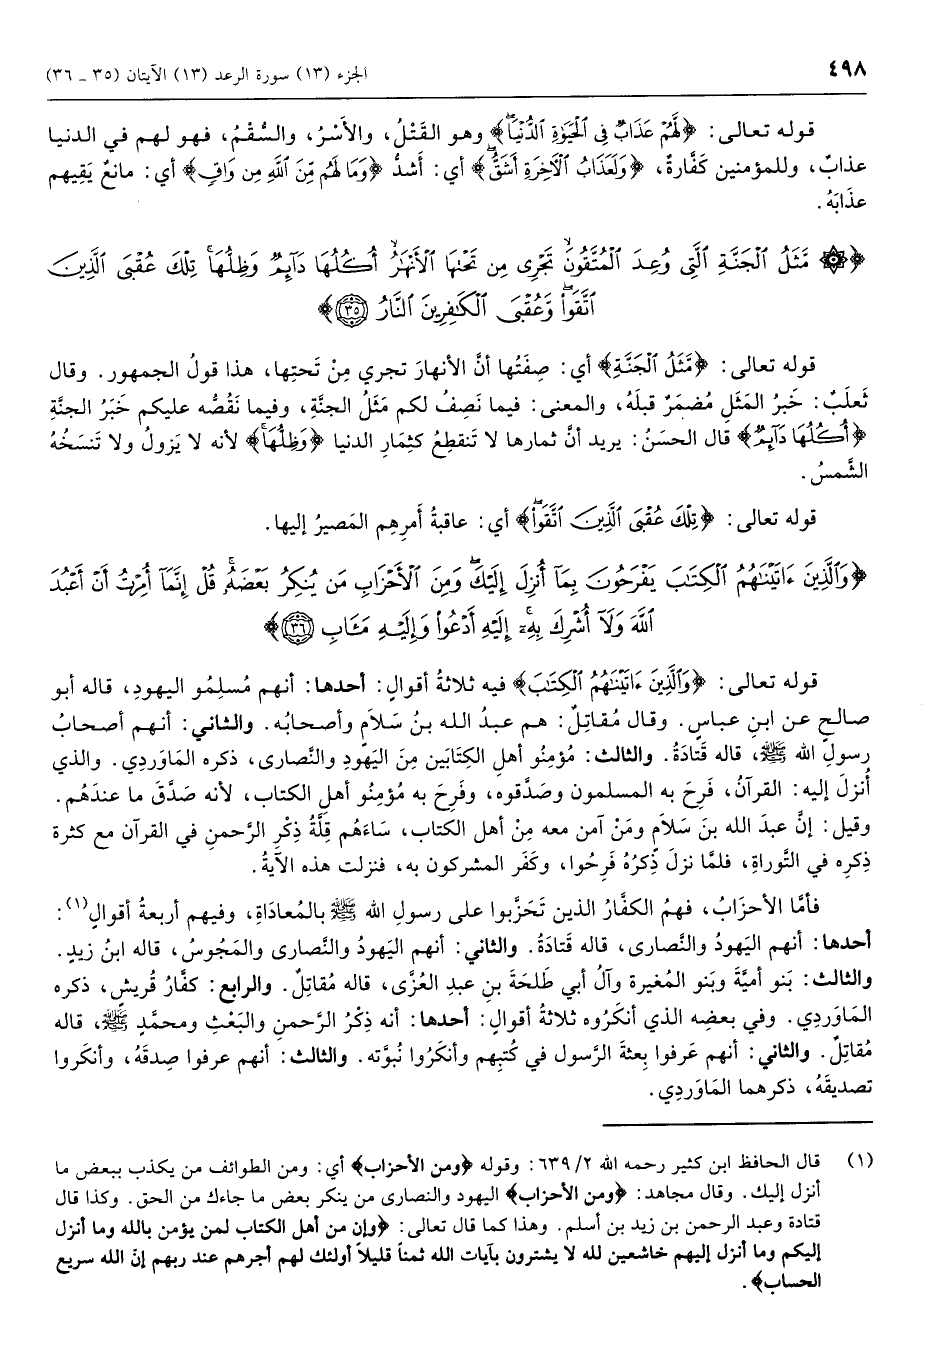 ٤٩٨
الجزء (١٣) سورة الرعد (١٣) الآيتان (٣٥ ـ ٣٦)
قوله تعالى: ﴿لَّهُمْ عَذَابٌ فِي الْحَيَوٰةِ الدُّنْيَا﴾ وهو القَتْلُ، والأَسْرُ، والسُّقْمُ، فهو لهم في الدنيا
عذابٌ، وللمؤمنين كَفَّارةٌ، ﴿وَلَعَذَابُ الْآخِرَةِ أَشَقُّ﴾ أي: أشدُّ ﴿وَمَا لَهُم مِّنَ اللَّهِ مِن وَاقٍ﴾ أي: مانعٌ يَقِيهم
عذابَهُ.
﴿۞ مَّثَلُ الْجَنَّةِ الَّتِي وُعِدَ الْمُتَّقُونَۖ تَجْرِي مِن تَحْتِهَا الْأَنْهَٰرُۖ أُكُلُهَا دَآئِمٌ وَظِلُّهَاۚ تِلْكَ عُقْبَى الَّذِينَ
اتَّقَواْۖ وَّعُقْبَى الْكَٰفِرِينَ النَّارُ ٣٥﴾
قوله تعالى: ﴿مَّثَلُ الْجَنَّةِ﴾ أي: صِفَتُها أنَّ الأنهارَ تجري مِنْ تَحتِها، هذا قولُ الجمهور. وقال
ثَعلَبٌ: خَبرُ المَثَلِ مُضمَرٌ قبلَهُ، والمعنى: فيما نَصِفُ لكم مَثَلُ الجنَّةِ، وفيما نَقُصُّه عليكم خَبَرُ الجنَّةِ
﴿أُكُلُهَا دَآئِمٌ﴾ قال الحسَنُ: يريد أنَّ ثمارها لا تَنقطِعُ كثِمَارِ الدنيا ﴿وَظِلُّهَا﴾ لأنه لا يَزولُ ولا تَنسَخُهُ
الشَّمسُ.
قوله تعالى: ﴿تِلْكَ عُقْبَى الَّذِينَ اتَّقَواْ﴾ أي: عاقبةُ أَمرِهِم المَصيرُ إليها.
﴿وَالَّذِينَ ءَاتَيْنَٰهُمُ الْكِتَٰبَ يَفْرَحُونَ بِمَآ أُنزِلَ إِلَيْكَۖ وَمِنَ الْأَحْزَابِ مَن يُنكِرُ بَعْضَهُۚ قُلْ إِنَّمَآ أُمِرْتُ أَنْ أَعْبُدَ
اللَّهَ وَلَآ أُشْرِكَ بِهِۦٓۚ إِلَيْهِ أَدْعُواْ وَإِلَيْهِ مَـَٔابِ ٣٦﴾
قوله تعالى: ﴿وَالَّذِينَ ءَاتَيْنَٰهُمُ الْكِتَٰبَ﴾ فيه ثلاثةُ أقوالٍ: أحدها: أنهم مُسلِمُو اليهودِ، قاله أبو
صالحٍ عن ابنِ عباسٍ. وقال مُقاتِلٌ: هم عبدُ الله بنُ سَلَامٍ وأصحابُه. والثاني: أنهم أصحابُ
رسولِ الله ﷺ، قاله قَتَادَةُ. والثالث: مُؤمِنُو أهلِ الكِتَابَين مِنَ اليَهودِ والنَّصارى، ذكره المَاوَردِي. والذي
أُنزلَ إليه: القرآنُ، فَرِحَ به المسلمون وصَدَّقوه، وفَرِحَ به مُؤمِنُو أهلِ الكتاب، لأنه صَدَّقَ ما عندَهُم.
وقيل: إنَّ عبدَ الله بنَ سَلَامٍ ومَنْ آمن معه مِنْ أهل الكتاب، سَاءَهُم قِلَّةُ ذِكْرِ الرَّحمنِ في القرآن مع كثرة
ذِكرِه في التَّوراةِ، فلمَّا نزلَ ذِكرُهُ فَرِحُوا، وكَفَر المشركون به، فنزلت هذه الآيةُ.
فأمَّا الأحزابُ، فهمُ الكفَّارُ الذين تَحَزَّبوا على رسولِ الله ﷺ بالمُعادَاةِ، وفيهم أربعةُ أقوالٍ(١):
أحدها: أنهم اليَهودُ والنَّصارى، قاله قَتادَةُ. والثاني: أنهم اليَهودُ والنَّصارى والمَجُوسُ، قاله ابنُ زيدٍ.
والثالث: بَنو أميَّةَ وبَنو المُغيرة وآلُ أبي طَلحَةَ بنِ عبدِ العُزَّى، قاله مُقاتِلٌ. والرابع: كفَّارُ قُريشٍ، ذكره
المَاوَردِي. وفي بعضِه الذي أنكَرُوه ثلاثةُ أقوالٍ: أحدها: أنه ذِكْرُ الرَّحمنِ والبَعْثِ ومحمَّدٍ ﷺ، قاله
مُقاتِلٌ. والثاني: أنهم عَرفوا بِعثةَ الرَّسول في كُتبِهم وأنكَرُوا نُبوَّته. والثالث: أنهم عرفوا صِدقَهُ، وأنكَروا
تصديقَهُ، ذكرهما المَاوَردِي.
(١) قال الحافظ ابن كثير رحمه الله ٢/ ٦٣٩: وقوله ﴿ومن الأحزاب﴾ أي: ومن الطوائف من يكذب ببعض ما
أنزل إليك. وقال مجاهد: ﴿ومن الأحزاب﴾ اليهود والنصارى من ينكر بعض ما جاءك من الحق. وكذا قال
قتادة وعبد الرحمن بن زيد بن أسلم. وهذا كما قال تعالى: ﴿وإن من أهل الكتاب لمن يؤمن بالله وما أنزل
إليكم وما أنزل إليهم خاشعين لله لا يشترون بآيات الله ثمناً قليلاً أولئك لهم أجرهم عند ربهم إنّ الله سريع
الحساب﴾.